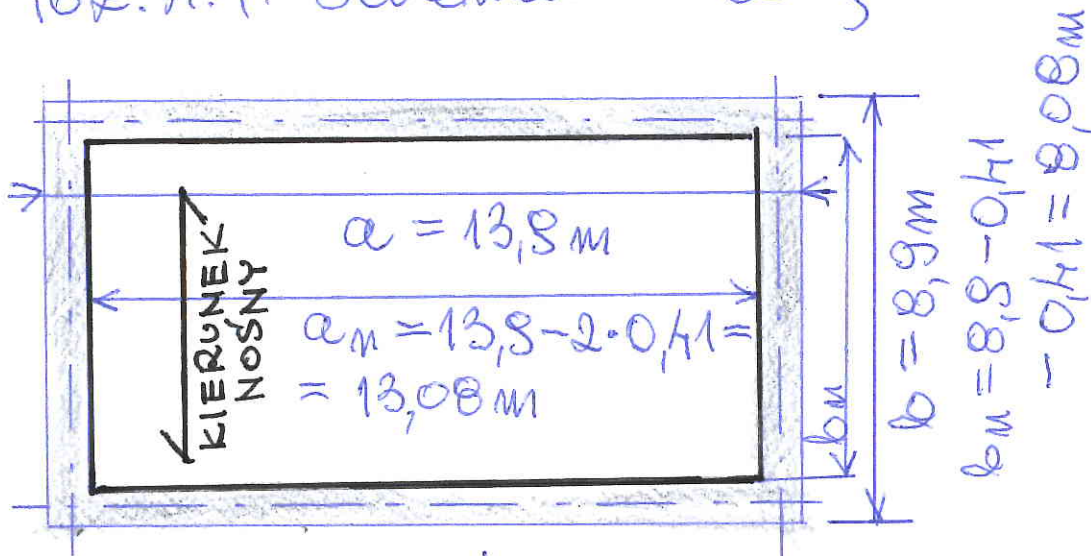 a = 13,9 m
KIERUNEK
NOŚNY
an = 13,9 - 2·0,41 =
= 13,08 m
bn
b = 8,9 m
bn = 8,9 - 0,41
- 0,41 = 8,08 m